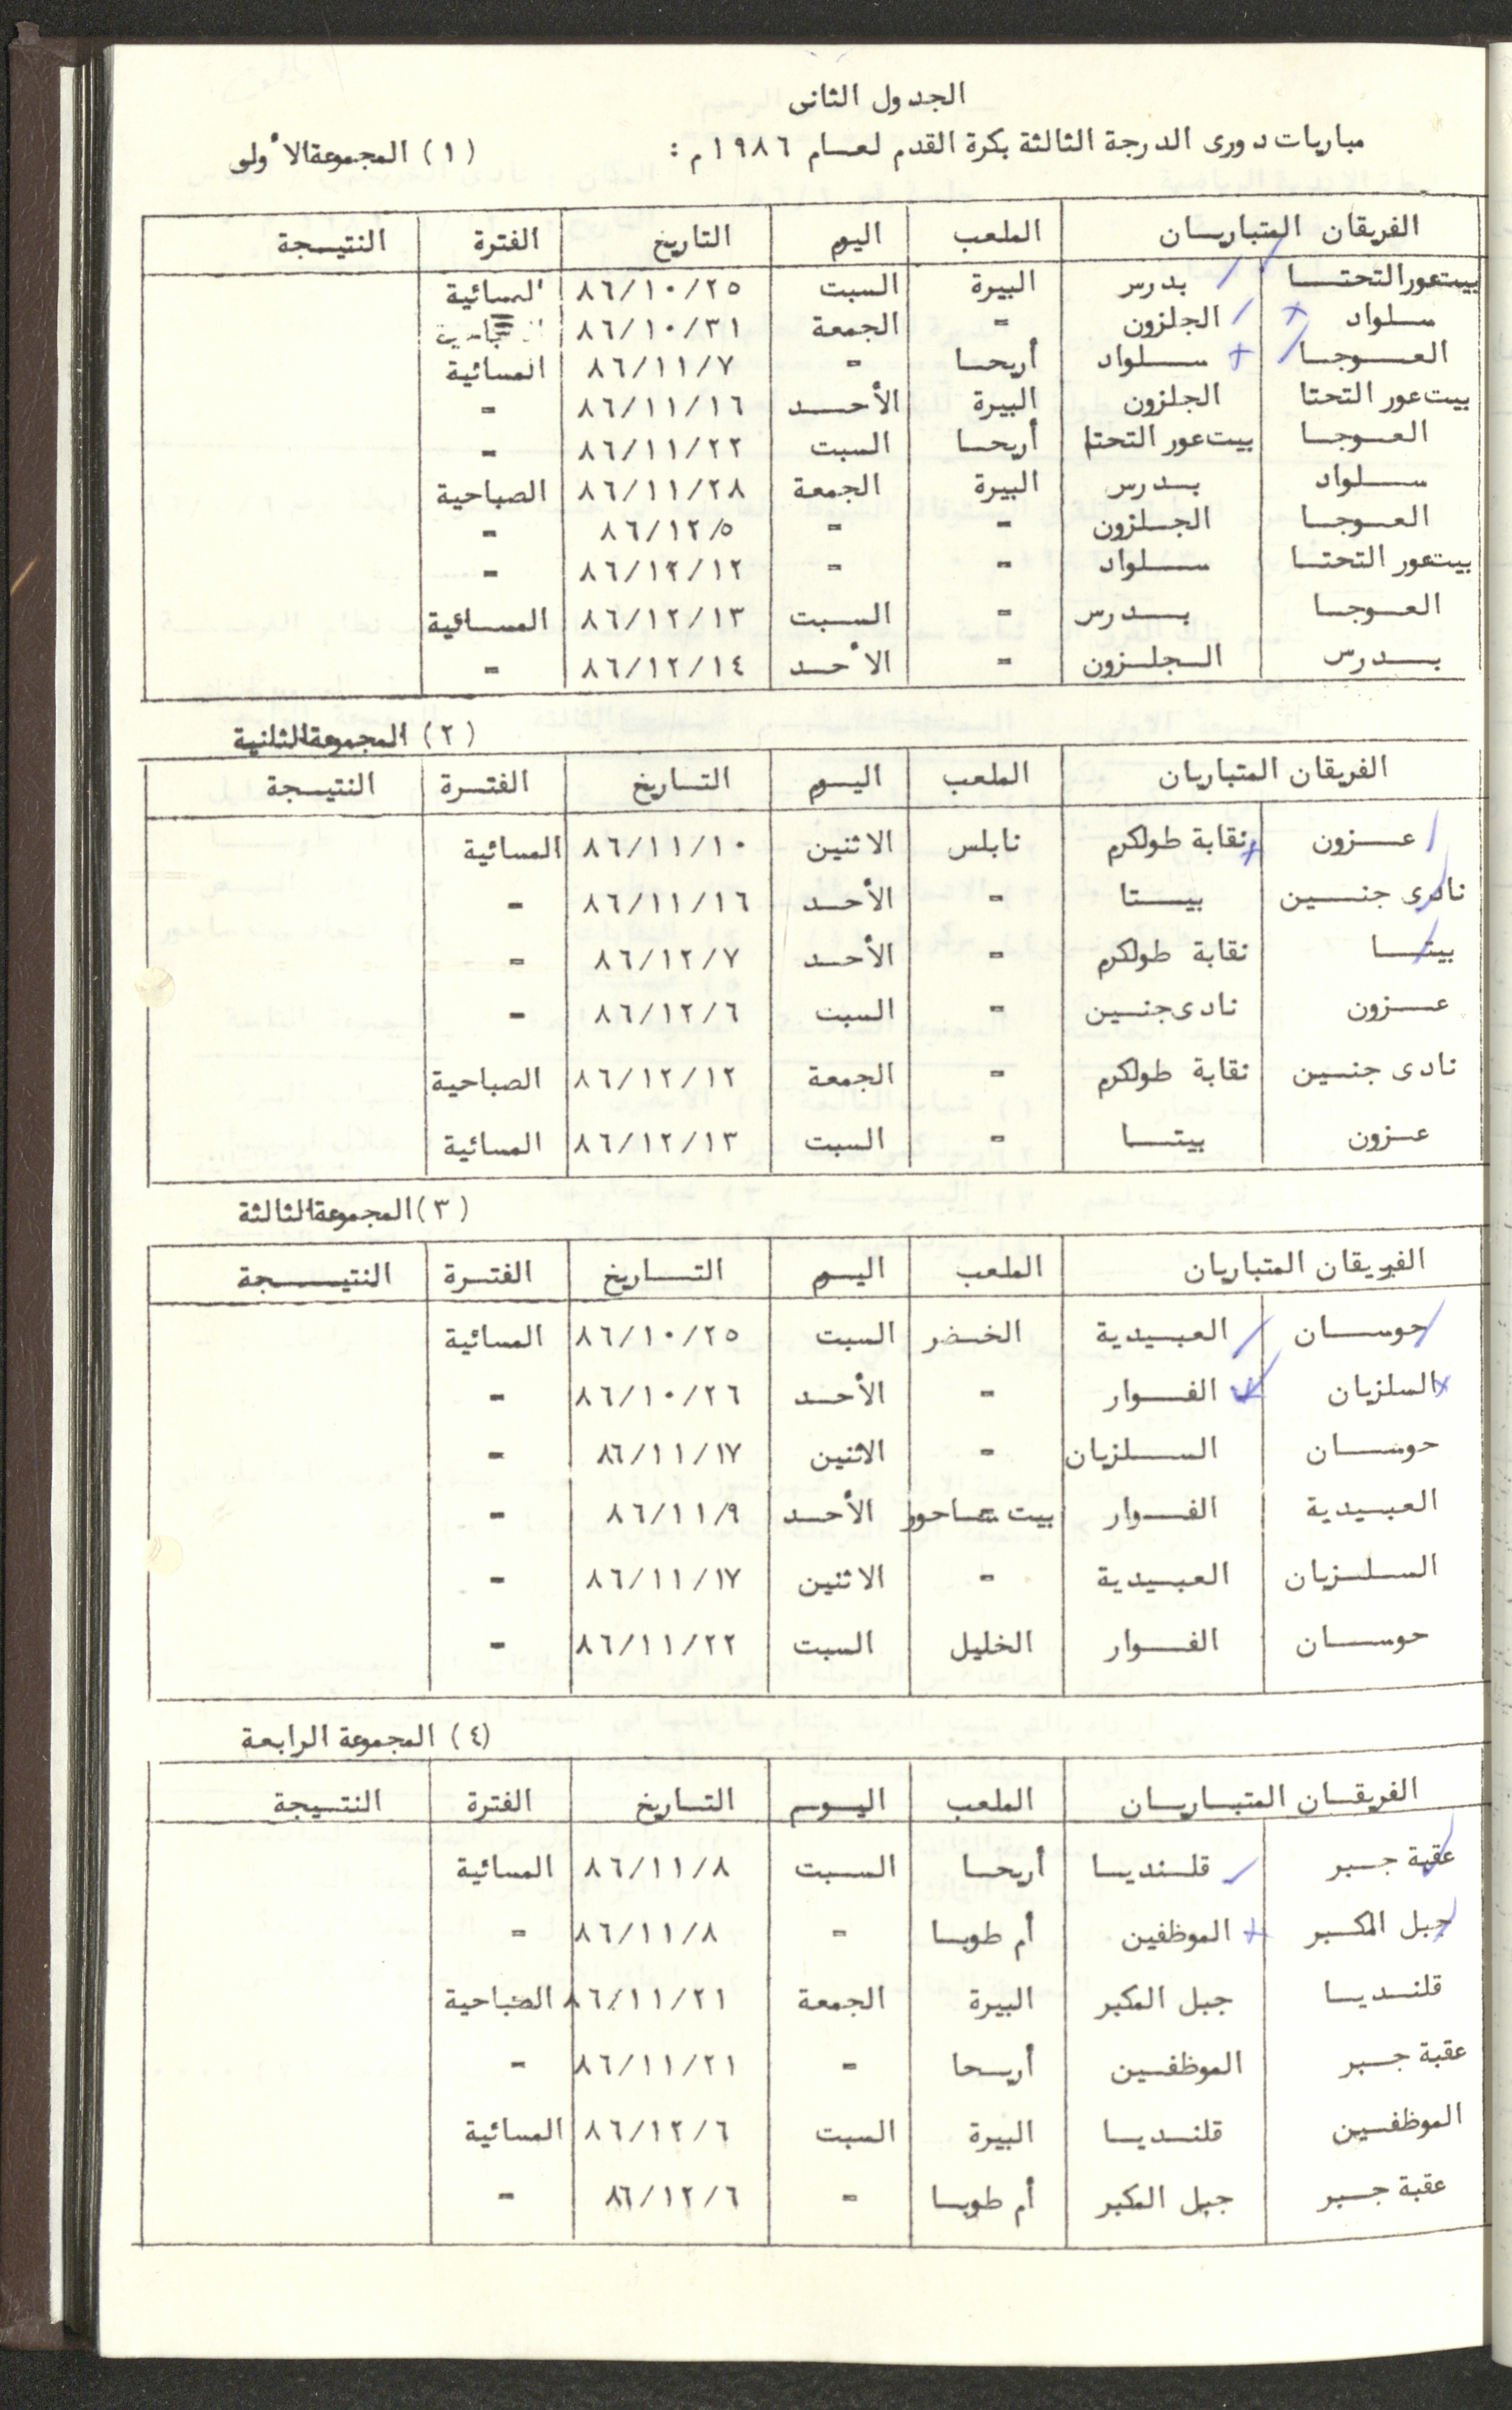 الجدول الثانى
مباريات دورى الدرجة الثالثة بكرة القدم لعام ١٩٨٦م : (١) المجموعة الأولى
الفريقان المتباريان الملعب اليوم التاريخ الفترة النتيجة
بيت عور التحتا بدرس البيرة السبت ٨٦/١٠/٢٥ المسائية
سلواد الجلزون = الجمعة ٨٦/١٠/٣١
العوجا سلواد أريحا = ٨٦/١١/٧ المسائية
بيت عور التحتا الجلزون البيرة الأحد ٨٦/١١/١٦ =
العوجا بيت عور التحتا أريحا السبت ٨٦/١١/٢٢ =
سلواد بدرس البيرة الجمعة ٨٦/١١/٢٨ الصباحية
العوجا الجلزون = = ٨٦/١٢/٥ =
بيت عور التحتا سلواد = = ٨٦/١٢/١٢ =
العوجا بدرس = السبت ٨٦/١٢/١٣ المسائية
بدرس الجلزون = الأحد ٨٦/١٢/١٤ =
(٢) المجموعة الثانية
الفريقان المتباريان الملعب اليوم التاريخ الفترة النتيجة
عزون نقابة طولكرم نابلس الاثنين ٨٦/١١/١٠ المسائية
نادى جنين بيتا = الأحد ٨٦/١١/١٦ =
بيتا نقابة طولكرم = الأحد ٨٦/١٢/٧ =
عزون نادى جنين = السبت ٨٦/١٢/٦ =
نادى جنين نقابة طولكرم = الجمعة ٨٦/١٢/١٢ الصباحية
عزون بيتا = السبت ٨٦/١٢/١٣ المسائية
(٣) المجموعة الثالثة
الفريقان المتباريان الملعب اليوم التاريخ الفترة النتيجة
حوسان العبيدية الخضر السبت ٨٦/١٠/٢٥ المسائية
السلزيان الفوار = الأحد ٨٦/١٠/٢٦ =
حوسان السلزيان = الاثنين ٨٦/١١/١٧ =
العبيدية الفوار بيت ساحور الأحد ٨٦/١١/٩ =
السلزيان العبيدية = الاثنين ٨٦/١١/١٧ =
حوسان الفوار الخليل السبت ٨٦/١١/٢٢ =
(٤) المجموعة الرابعة
الفريقان المتباريان الملعب اليوم التاريخ الفترة النتيجة
عقبة جبر قلنديا أريحا السبت ٨٦/١١/٨ المسائية
جبل المكبر الموظفين أم طوبا = ٨٦/١١/٨ =
قلنديا جبل المكبر البيرة الجمعة ٨٦/١١/٢١ الصباحية
عقبة جبر الموظفين أريحا = ٨٦/١١/٢١ =
الموظفين قلنديا البيرة السبت ٨٦/١٢/٦ المسائية
عقبة جبر جبل المكبر أم طوبا = ٨٦/١٢/٦ =